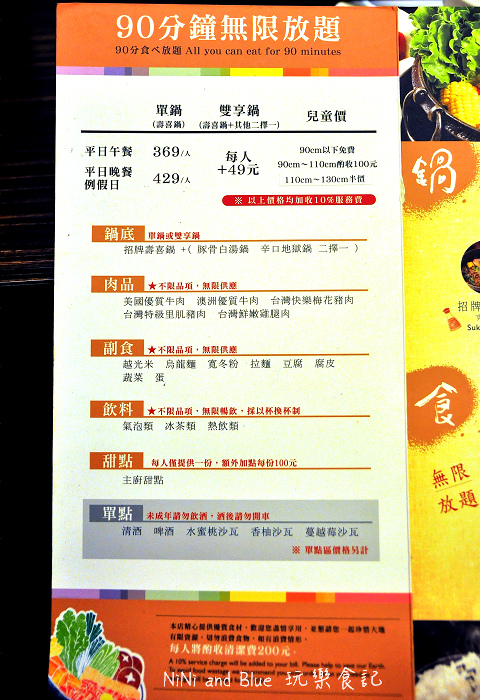 90分鐘無限放題
90分食べ放題 All you can eat for 90 minutes
單鍋 雙享鍋 兒童價
(壽喜鍋) (壽喜鍋+其他二擇一)
平日午餐 369/人
平日晚餐 429/人
例假日
每人
+49元
90cm以下免費
90cm～110cm酌收100元
110cm～130cm半價
※ 以上價格均加收10%服務費
鍋底 單鍋或雙享鍋
招牌壽喜鍋 +( 豚骨白湯鍋 辛口地獄鍋 二擇一 )
肉品 ★不限品項，無限供應
美國優質牛肉 澳洲優質牛肉 台灣快樂梅花豬肉
台灣特級里肌豬肉 台灣鮮嫩雞腿肉
副食 ★不限品項，無限供應
越光米 烏龍麵 寬冬粉 拉麵 豆腐 腐皮
蔬菜 蛋
飲料 ★不限品項，無限暢飲，採以杯換杯制
氣泡類 冰茶類 熱飲類
甜點 每人僅提供一份，額外加點每份100元
主廚甜點
單點 未成年請勿飲酒，酒後請勿開車
清酒 啤酒 水蜜桃沙瓦 香柚沙瓦 蔓越莓沙瓦
※ 單點區價格另計
本店精心提供優質食材，歡迎您盡情享用，並懇請您一起珍惜大地
有限資源，切勿浪費食物，如有浪費情形，
每人將酌收清潔費200元。
A 10% service charge will be added to your bill. Please help to save our Earth.
鍋
招牌
Suk
食
無限
放題
NiNi and Blue 玩樂食記